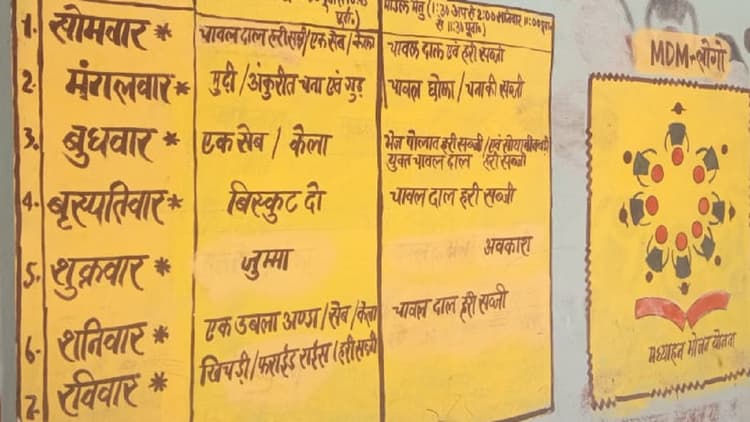 पूर्वा.)
मॉडल मेनु (1:30 अप से 2:00 शनिवार 11:00 पूर्वा.
से 11:30 पूर्वा.)
1. सोमवार * चावल दाल हरी सब्जी/एक सेब/केला चावल दाल एवं हरी सब्जी
2. मंगलवार * मुढ़ी/अंकुरीत चना एवं गुड़ चावल छोला/चना की सब्जी
3. बुधवार * एक सेब / केला भेज पोलाव हरी सब्जी/एवं सोयाबीनबड़ी
युक्त चावल दाल हरी सब्जी
4. बृस्पतिवार * बिस्कुट दो चावल दाल हरी सब्जी
5. शुक्रवार * जुम्मा अवकारा
6. शनिवार * एक उबला अण्डा/सेब/केला चावल दाल हरी सब्जी
7. रविवार * खिचड़ी/फराईड राईस/हरी सब्जी
MDM-लोगो
मध्याहन भोजन योजना